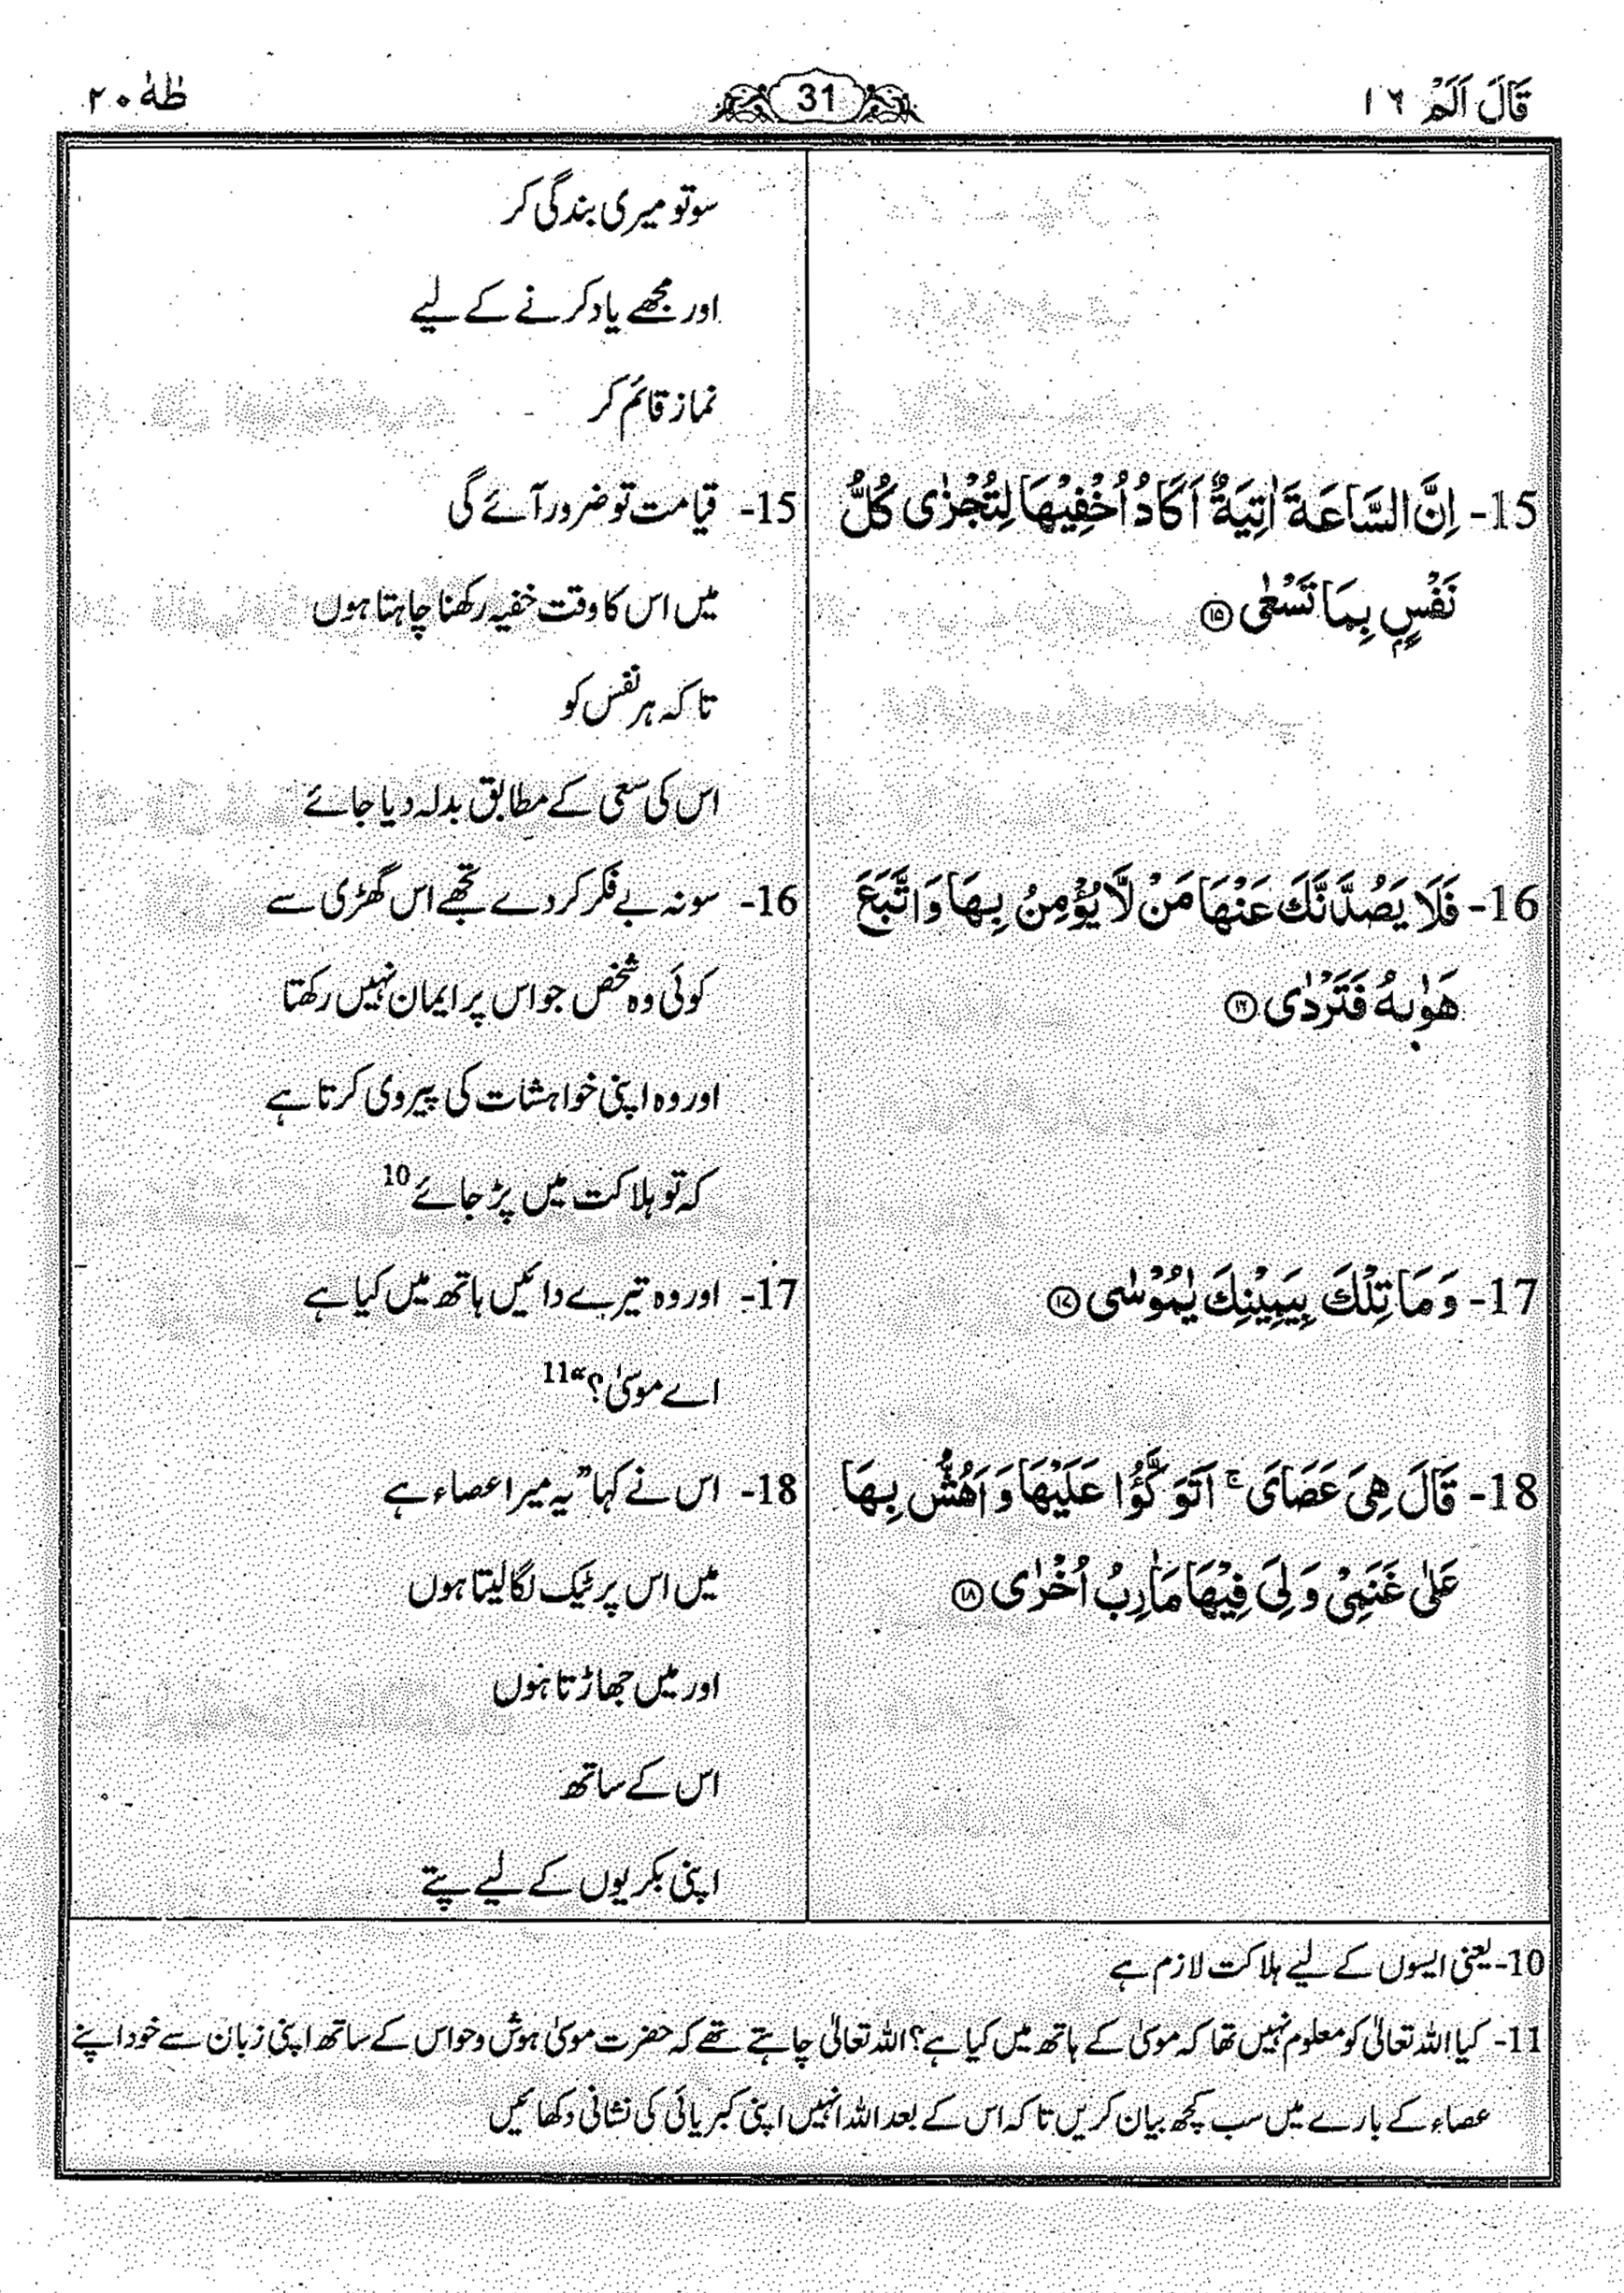 قَالَ اَلَمْ ١٦
31
طٰهٰ ٢٠
سو تو میری بندگی کر
اور مجھے یاد کرنے کے لیے
نماز قائم کر
15- اِنَّ السَّاعَةَ اٰتِيَةٌ اَكَادُ اُخْفِيْهَا لِتُجْزٰى كُلُّ
نَفْسٍۭ بِمَا تَسْعٰى ⑮
15- قیامت تو ضرور آئے گی
میں اس کا وقت خفیہ رکھنا چاہتا ہوں
تاکہ ہر نفس کو
اس کی سعی کے مطابق بدلہ دیا جائے
16- فَلَا يَصُدَّنَّكَ عَنْهَا مَنْ لَّا يُؤْمِنُ بِهَا وَاتَّبَعَ
هَوٰىهُ فَتَرْدٰى ⑯
16- سو نہ بے فکر کر دے تجھے اس گھڑی سے
کوئی وہ شخص جو اس پر ایمان نہیں رکھتا
اور وہ اپنی خواہشات کی پیروی کرتا ہے
کہ تو ہلاکت میں پڑ جائے 10
17- وَمَا تِلْكَ بِيَمِيْنِكَ يٰمُوْسٰى ⑰
17- اور وہ تیرے دائیں ہاتھ میں کیا ہے
اے موسیٰ؟“ 11
18- قَالَ هِىَ عَصَاىَ ۚ اَتَوَكَّؤُا عَلَيْهَا وَاَهُشُّ بِهَا
عَلٰى غَنَمِىْ وَلِىَ فِيْهَا مَاٰرِبُ اُخْرٰى ⑱
18- اس نے کہا ”یہ میرا عصاء ہے
میں اس پر ٹیک لگا لیتا ہوں
اور میں جھاڑتا ہوں
اس کے ساتھ
اپنی بکریوں کے لیے پتے
10- یعنی ایسوں کے لیے ہلاکت لازم ہے
11- کیا اللہ تعالیٰ کو معلوم نہیں تھا کہ موسیٰ کے ہاتھ میں کیا ہے؟ اللہ تعالیٰ چاہتے تھے کہ حضرت موسیٰ ہوش و حواس کے ساتھ اپنی زبان سے خود اپنے
عصاء کے بارے میں سب کچھ بیان کریں تاکہ اس کے بعد اللہ انہیں اپنی کبریائی کی نشانی دکھائیں